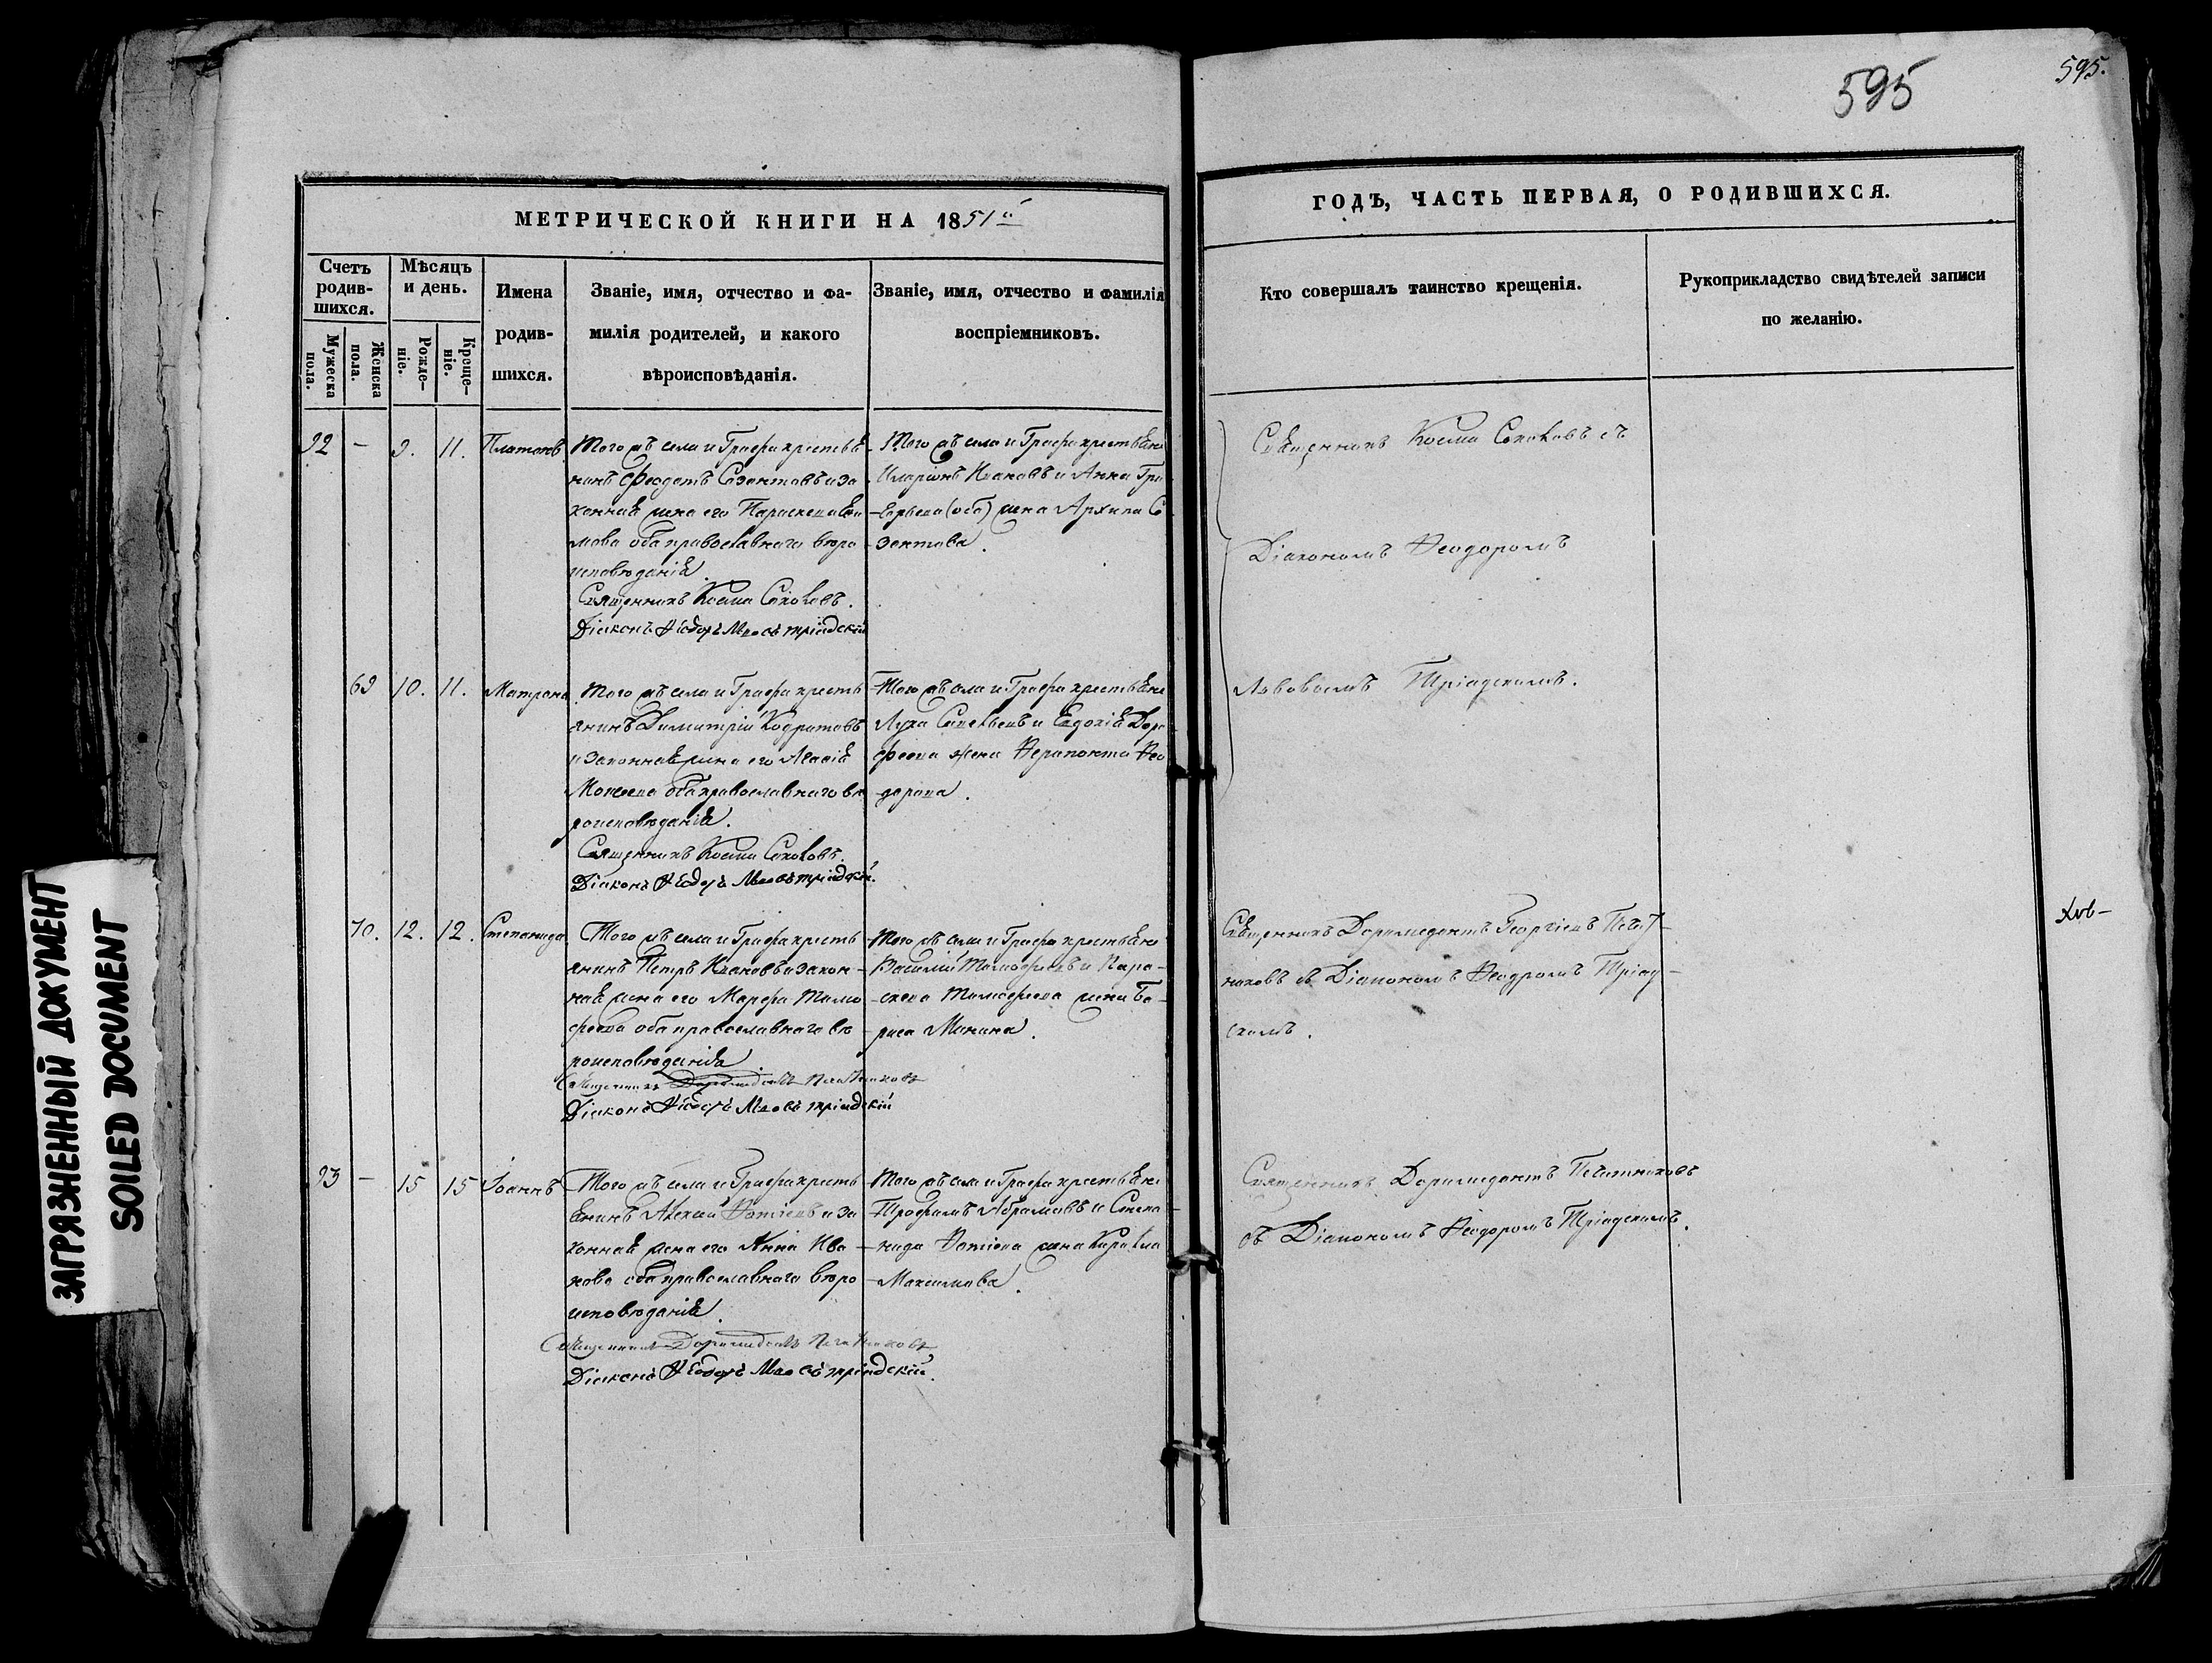 595
595.
МЕТРИЧЕСКОЙ КНИГИ НА 1851й
ГОДЪ, ЧАСТЬ ПЕРВАЯ, О РОДИВШИХСЯ.
Счетъ родив-шихся.
Мужеска пола.
Женска пола.
Мѣсяцъ и день.
Рожде-ніе.
Креще-ніе.
Имена
родив-
шихся.
Званіе, имя, отчество и фа-
милія родителей, и какого
вѣроисповѣданія.
Званіе, имя, отчество и фамилія
воспріемниковъ.
Кто совершалъ таинство крещенія.
Рукоприкладство свидѣтелей записи
по желанію.
92 — 9. 11. Платонъ
Того жъ села и Графа крестья
нинъ Феодотъ Созонтовъ и за
конная жена его Параскева
мова оба православнаго вѣро
исповѣданія.
Священникъ Косма Соколовъ.
Діаконъ Ѳеодоръ Тріадскій
Того жъ села и Графа крестьяне
Иларіонъ Ивановъ и Анна Гри
горьева (оба) жена Архипа Со
зонтова.
Священникъ Косма Соколовъ съ
Діакономъ Ѳеодоромъ
Тріадскимъ.
69 10. 11. Матрона
Того жъ села и Графа кресть
янинъ Димитрій Кодратовъ
и законная жена его
Моисеева оба православнаго вѣ
роисповѣданія.
Священникъ Косма Соколовъ.
Діаконъ Ѳеодоръ Тріадскій.
Того жъ села и Графа крестьяне
Лука Савельевъ и Евдокія Доро
феева жена Ѳерапонта Ѳео
дорова.
70. 12. 12. Степанида
Того жъ села и Графа кресть
янинъ Петръ Ивановъ и закон-
ная жена его Марфа Тимо
феева оба православнаго вѣ
роисповѣданія.
Священникъ Доримедонтъ Печатниковъ
Діаконъ Ѳеодоръ Тріадскій
Того жъ села и Графа крестьяне
Василій Тимофеевъ и Пара-
скева Тимофеева жена Бо-
риса Минина.
Священникъ Доримедонтъ Георгіевъ Печат-
никовъ съ Діакономъ Ѳеодромъ Тріад-
скимъ.
93 — 15 15 Іоаннъ
Того жъ села и Графа кресть
янинъ Алексій Фотіевъ и за
конная жена его Анна Ива
нова оба православнаго вѣро
исповѣданія.
Священникъ Доримедонтъ Печатниковъ
Діаконъ Ѳеодоръ Тріадскій.
Того жъ села и Графа крестьяне
Трофимъ Абрамовъ и Степа
нида Фотіева жена Кирилла
Максимова.
Священникъ Доримедонтъ Печатниковъ
съ Діакономъ Ѳеодоромъ Тріадскимъ.
ЗАГРЯЗНЕННЫЙ ДОКУМЕНТ
SOILED DOCUMENT